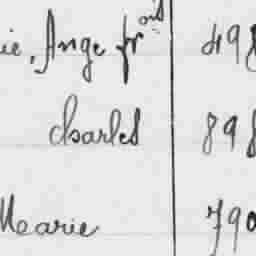 ie, Ange fr^ois 498
Charles 898
Marie 790